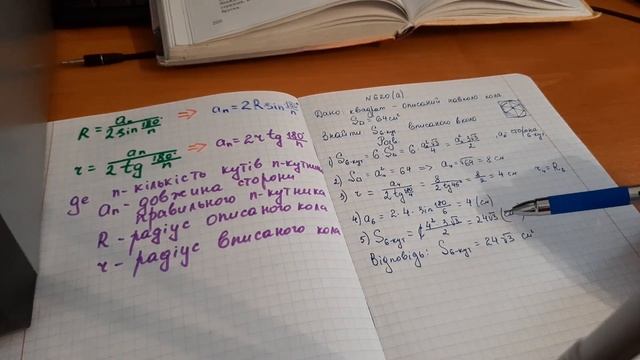 R = aₙ / 2 sin 180/n ⇒ aₙ = 2R sin 180/n
r = aₙ / 2 tg 180/n ⇒ aₙ = 2r tg 180/n
де n - кількість кутів n-кутника
aₙ - довжина сторони
правильного n-кутника
R - радіус описаного кола
r - радіус вписаного кола
N620(а)
Дано: квадрат - описаний навколо кола
S□ = 64 см²
Знайти S6-кут вписаного
1) S6-кут = 6 · S△ = 6 · a²√3/4 = a² 3√3/2 , a₆ сторона 6-кут.
2) S□ = a² = 64 ⇒ a₄ = √64 = 8 см
3) r = aₙ / 2 tg 180/n = 8 / 2 tg 45° = 8/2 = 4 см r₄ = R₆
4) a₆ = 2 · 4 · sin 180/6 = 4 (см)
5) S6-кут = 4² 3√3 / 2 = 24√3
Відповідь: S6-кут = 24√3 см²